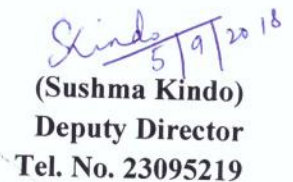 SKindo
5/9/2018
(Sushma Kindo)
Deputy Director
Tel. No. 23095219